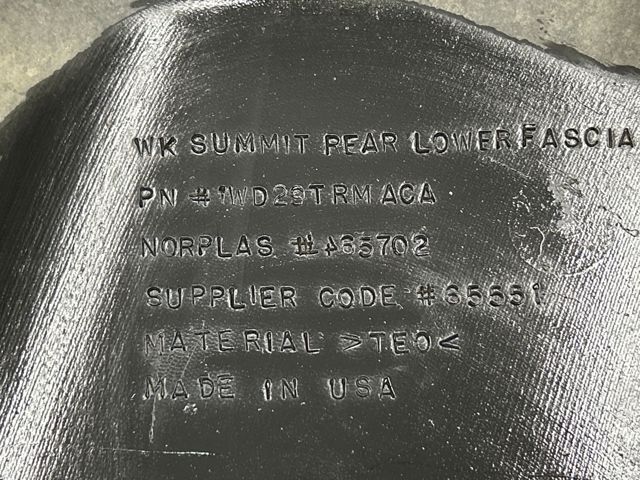 WK SUMMIT REAR LOWER FASCIA
PN # 1WD29TRMACA
NORPLAS # A65702
SUPPLIER CODE #65551
MATERIAL >TEO<
MADE IN USA